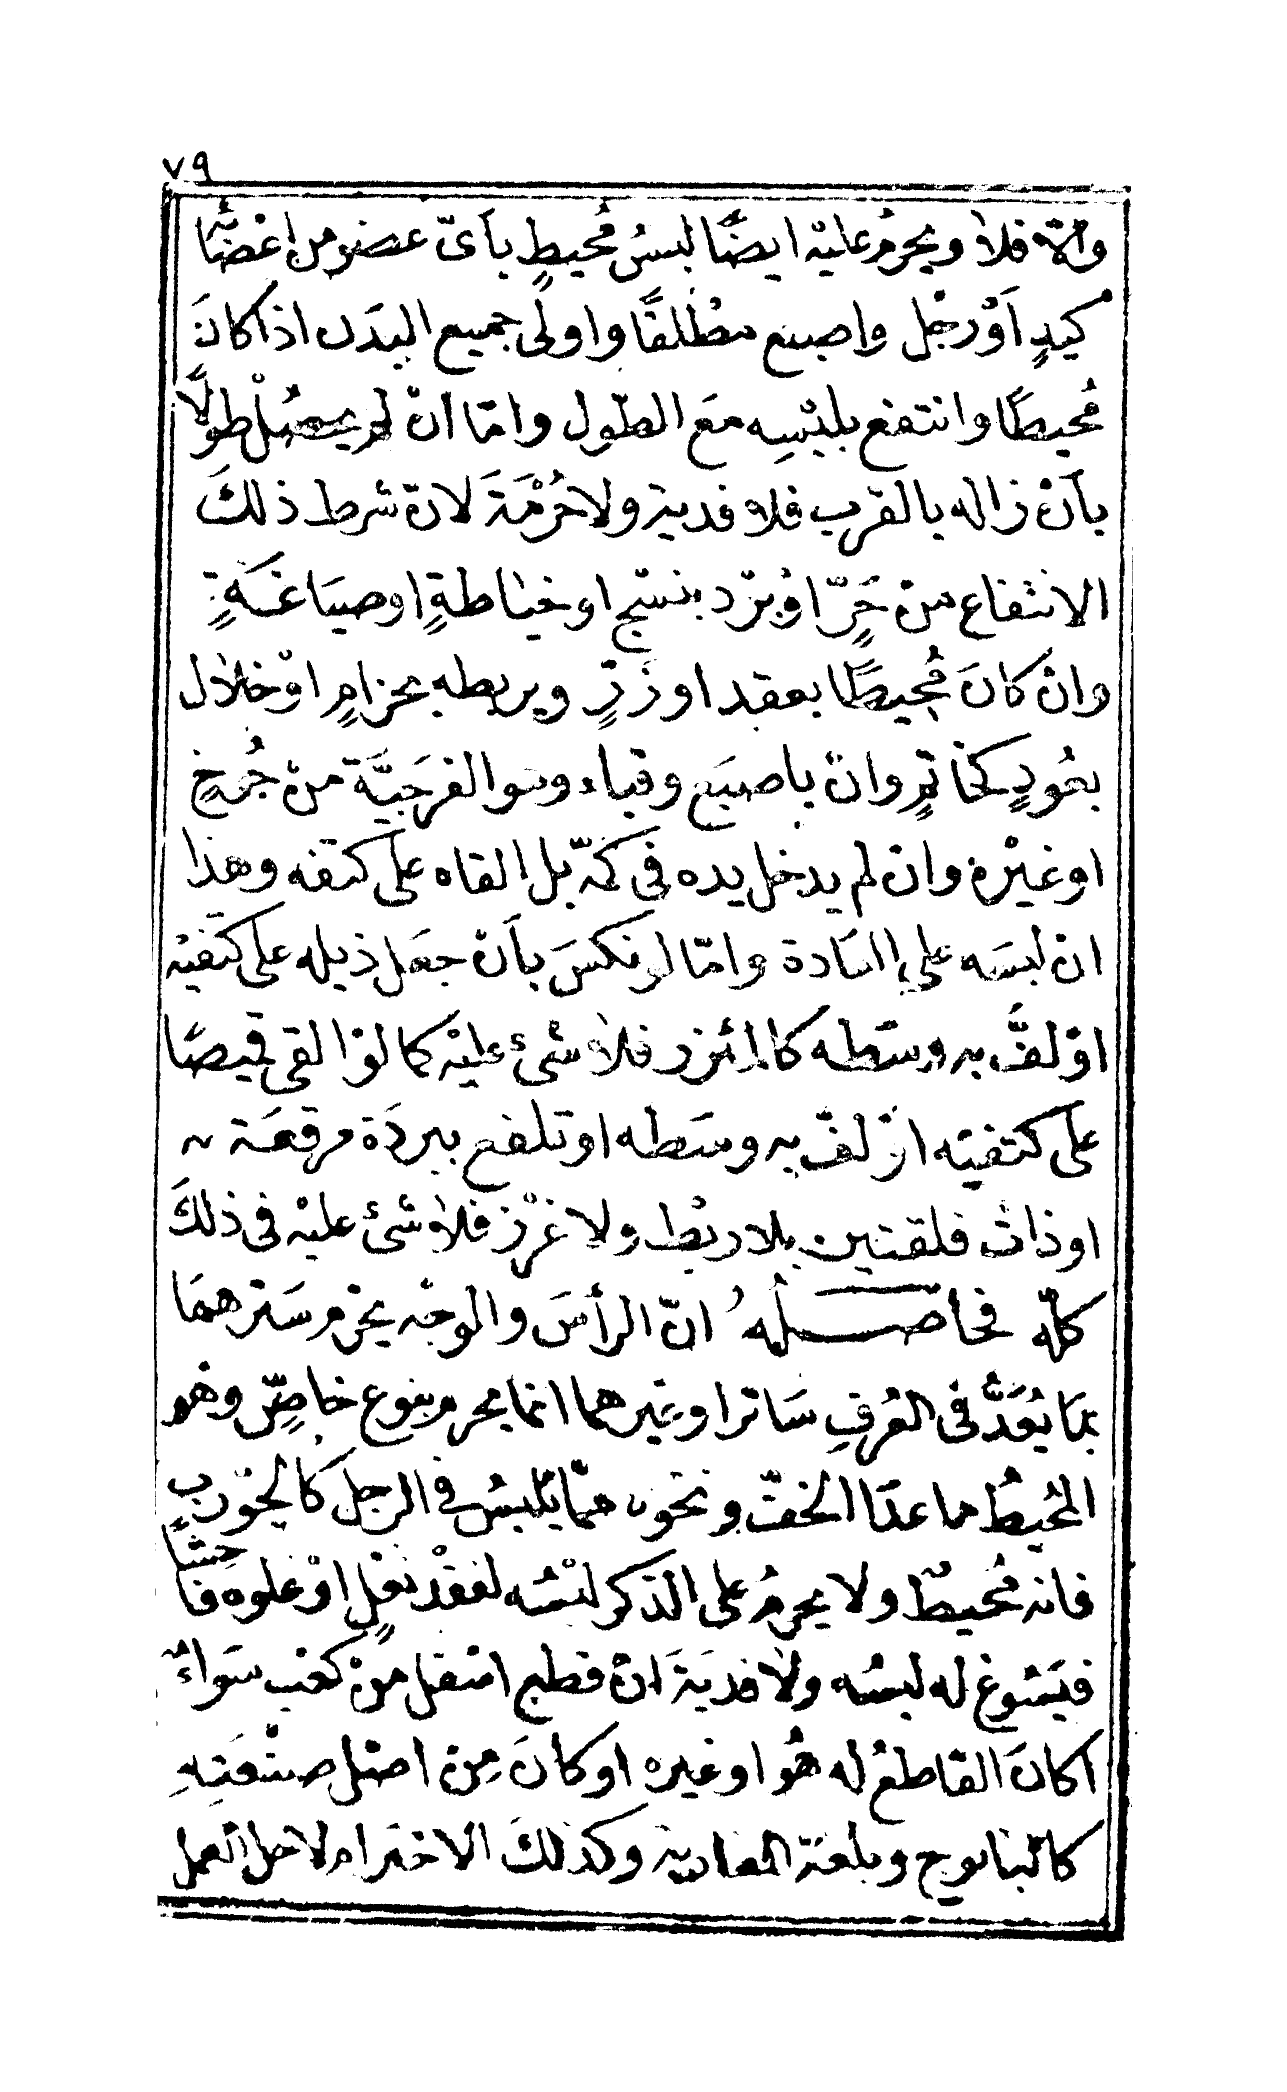 ٧٩
والّا فلا ويحرمُ عليْه ايضًا لبسُ مُحيطٍ بأىّ عضو من اعْضائه
كيدٍ اَوْ رجْل واصبع مطْلقًا واولى جميع البدَن اذا كانَ
مُحيطًا وانتفع بلبْسِه معَ الطول وامّا انْ لم يحصُلْ طولًا
بأنْ زاله بالقرب فلا فدية ولا حُرْمَةَ لانّ شرط ذلكَ
الانتفاع منْ حَرٍّ اوْ بَرْد بنسْج او خياطةٍ او صيَاغَةٍ
وانْ كانَ مُحيطًا بعقد او زرٍّ ويربطه بحزامٍ اوْ خلال
بعُودٍ كخاتمٍ وانْ باصبَع وقباء وهو الفرجيَّة منْ جُوخٍ
او غيْره وان لم يدخل يده فى كمّه بل القاه على كتفه وهذا
ان لبسَه على العَادة وامّا لو نكسَ بأنْ جعَل ذيله على كتفيْه
اوْ لفَّ به وسَطه كالمئزر فلا شىْء عليْه كما لوْ القى قميصًا
على كتفيْه اوْ لفّ به وسَطه او تلفع ببردَة مرقعَة
او ذات فلقتين بلا ربْط ولا غرْز فلا شىْء عليْه فى ذلكَ
كلّه فحاصلُهُ انّ الرأسَ والوجْه يحْرم ستْرهمَا
بمَا يُعَدُّ فى العُرفِ سَاترا وغيرهما انما يحرم بنوع خاصٍّ وهو
المُحيطُ ما عدَا الخفّ ونحوه ممّا يُلبسُ فى الرجلَ كالجوْرب
فانه مُحيطٌ ولا يحرمُ على الذكر لبْسُه لفقْد نعْلٍ اوْ غلوه فاحشًا
فيَسُوغ له لبسُه ولا فديَةَ انْ قطع اسْفل منْ كعْب سَواءٌ
أكانَ القاطعُ له هُوا وغيره او كانَ مِنْ اصْل صنْعَتِهِ
كالبابوج وبلغة المغاربة وكذلكَ الاحتزام لاجل العمل